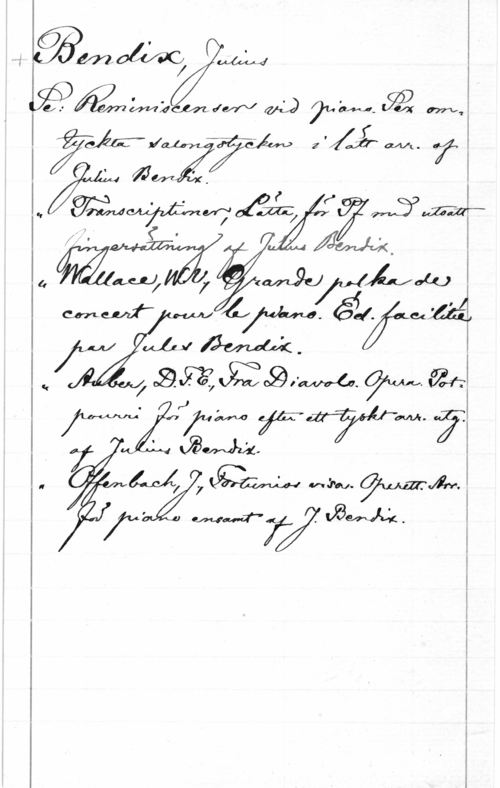 Bendix, Julius
Se: Reminiscenser vid piano. Sex om-
tyckta salongstycken i lätt arr. af
Julius Bendix.
" Transcriptioner, Lätta, för Pf med utsatt
fingersättning af Julius Bendix.
" Wallace, W.V., Grande polka de
concert pour le piano. Éd. facilitée
par Jules Bendix.
" Auber, D.F.E., Fra Diavolo. Opera. Pot-
pourri för piano efter ett tyskt arr. utg.
af Julius Bendix.
" Offenbach, J., Fortunios visa. Operett. Arr.
för piano ensamt af J. Bendix.